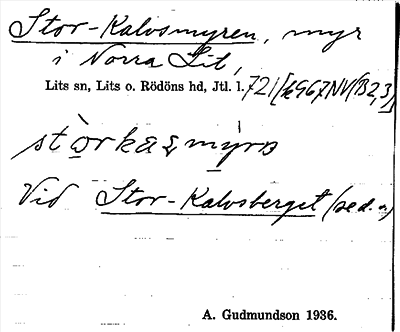 Stor-Kalvsmyren, myr
i Norra Lit,
Lits sn, Lits o. Rödöns hd, Jtl. l. 721 [296 7NV(B2,3)]
Vid Stor-Kalvsberget (se d. o.)
A. Gudmundson 1936.